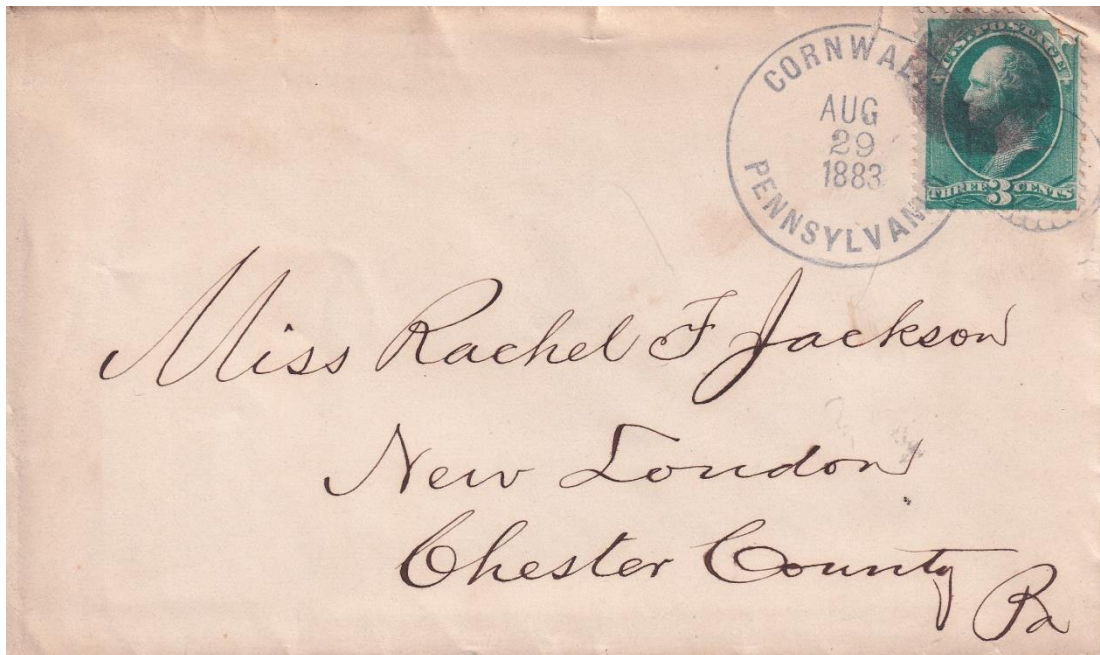 CORNWALL
AUG
29
1883
PENNSYLVANIA
U.S. POSTAGE
THREE 3 CENTS
Miss Rachel F Jackson
New London
Chester County
Pa